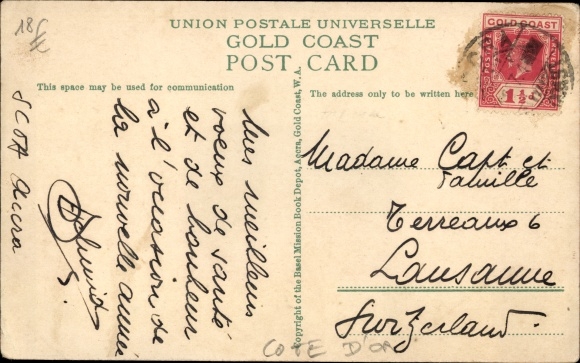 18F
UNION POSTALE UNIVERSELLE
GOLD COAST
POST CARD
This space may be used for communication
The address only to be written here
GOLD COAST
POSTAGE
1½
Mes meilleurs
voeux de santé
et de bonheur
à l'occasion de
la nouvelle année
SCOA Accra
Copyright of the Basel Mission Book Depot, Accra, Gold Coast, W. A.
Madame Capt et
famille
Terreaux 6
Lausanne
Switzerland.
COTE D'OR